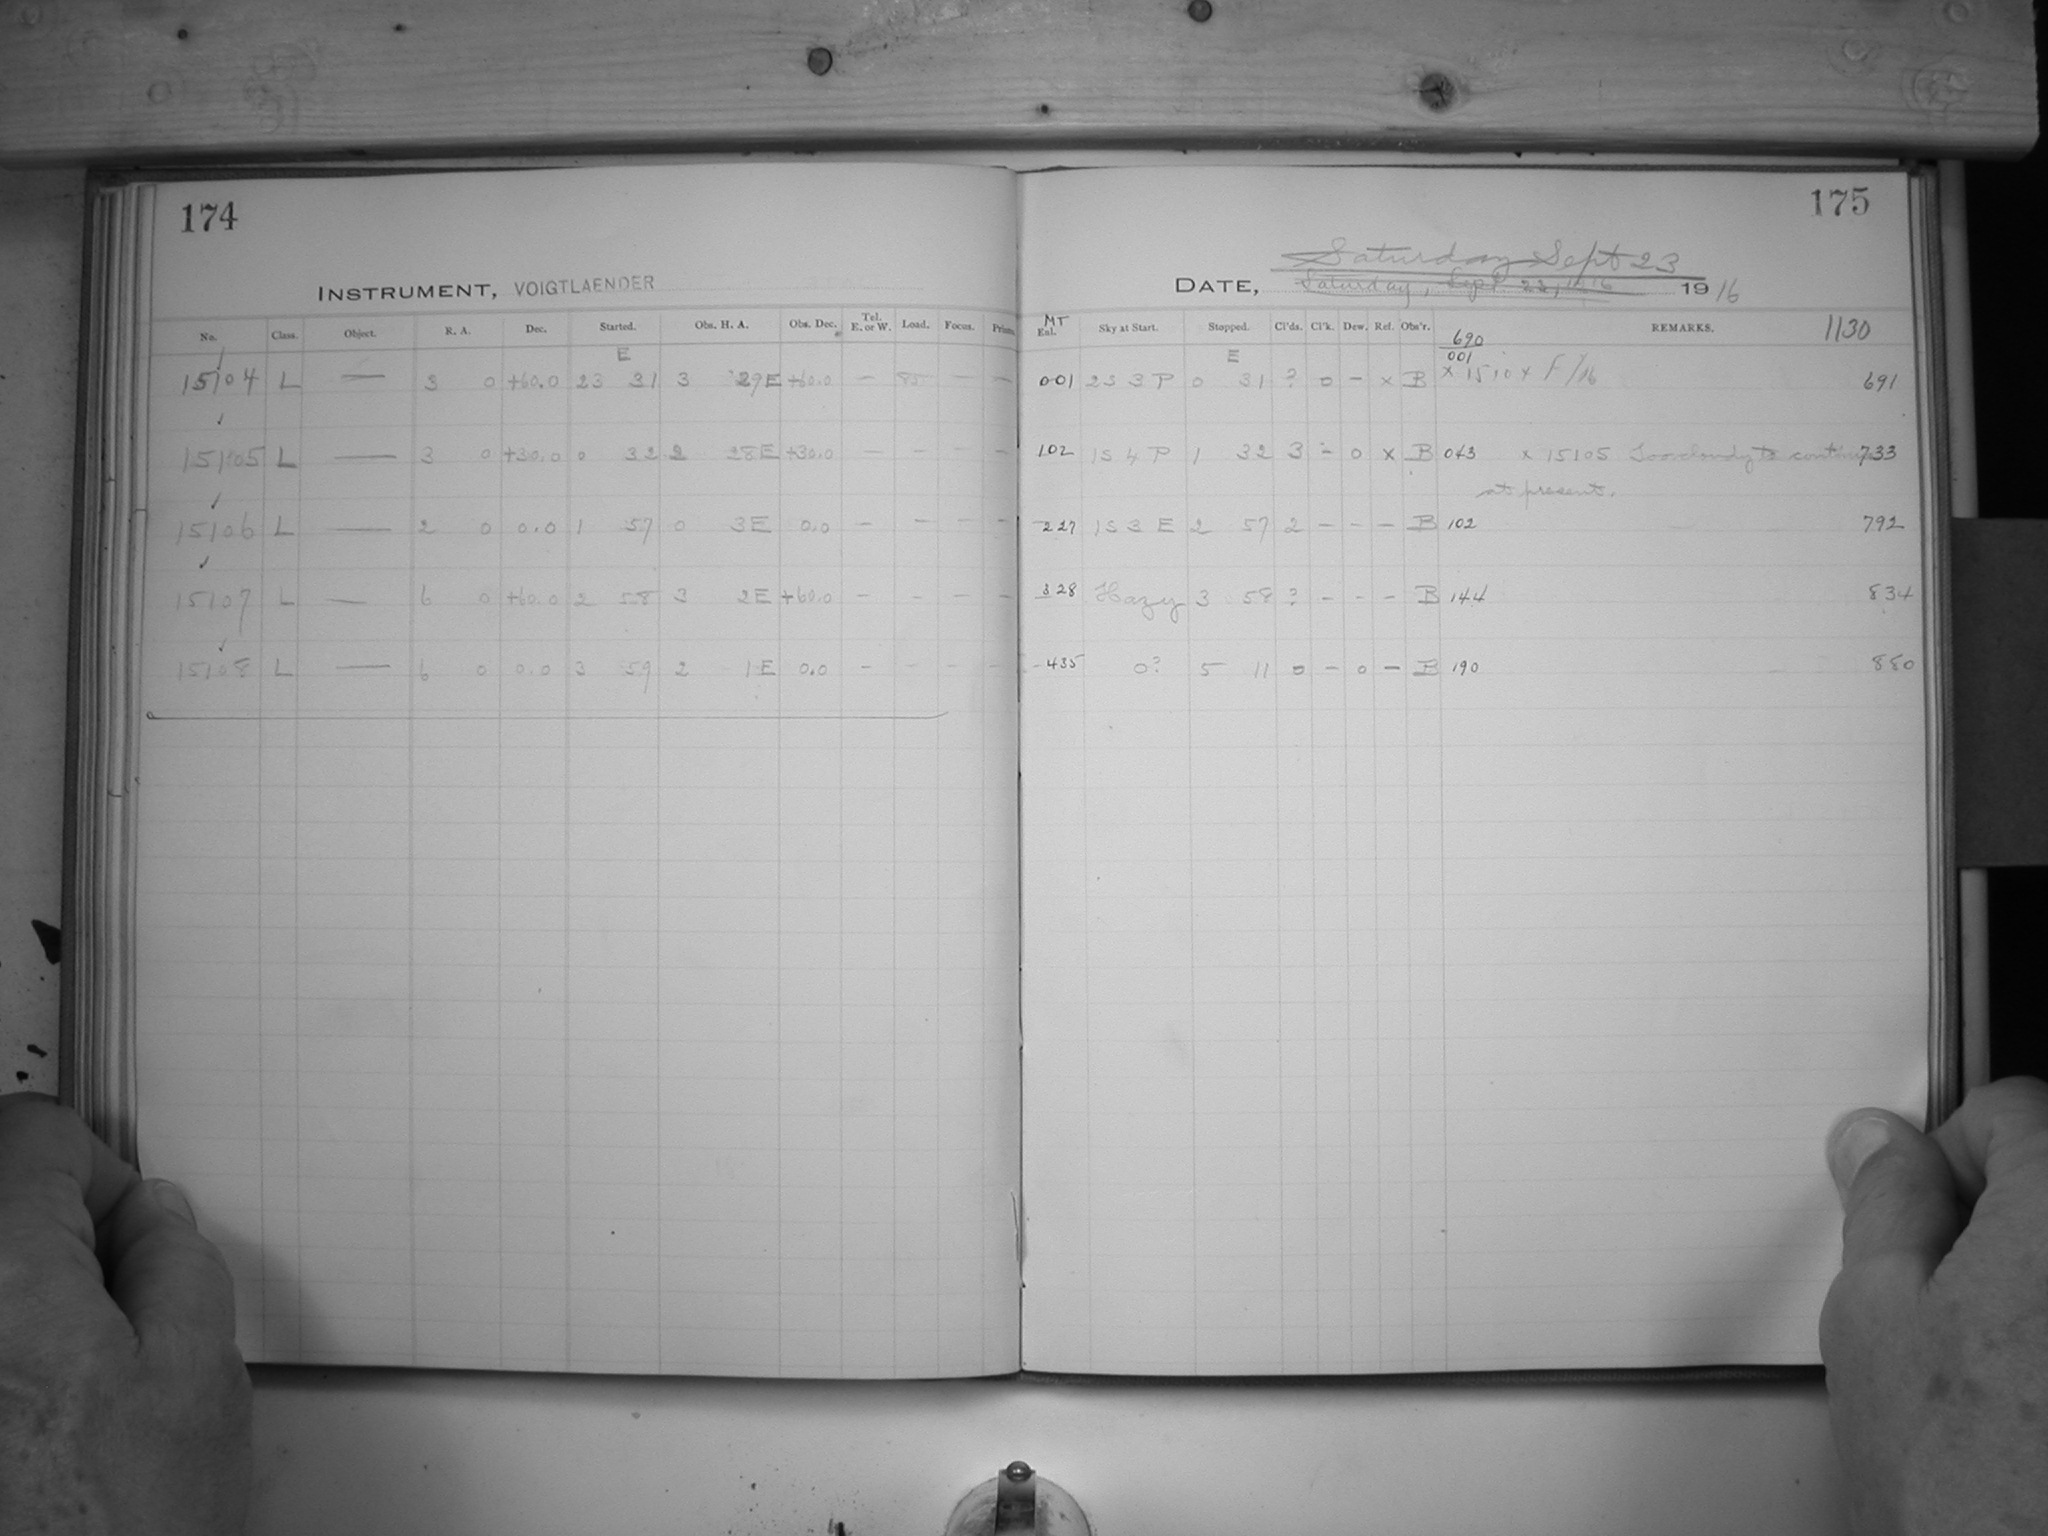 174
INSTRUMENT, VOIGTLAENDER
No. Class. Object. R. A. Dec. Started. Obs. H. A. Obs. Dec. Tel. E. or W. Load. Focus. Prism
E
15104 L — 3 0 +60.0 23 31 3 29E +60.0 — — —
15105 L — 3 0 +30.0 0 32 2 28E +30.0 — — — —
15106 L — 2 0 0.0 1 57 0 3E 0.0 — — — —
15107 L — 6 0 +60.0 2 58 3 2E +60.0 — — — —
15108 L — 6 0 0.0 3 59 2 1E 0.0 — — — —
175
Saturday Sept 23
DATE, Saturday, Sept. 23, 1916 1916
MT
Enl. Sky at Start. Stopped. Cl'ds. Cl'k. Dew. Ref. Obs'r. REMARKS. 1130
690
E 001
001 2S 3 P 0 31 ? 0 – x B x 1510x F/16 691
102 1S 4 P 1 32 3 – 0 x B 043 x 15105 Too cloudy to continue 733
at present.
227 1S 3 E 2 57 2 – – – B 102 792
328 Hazy 3 58 ? – – – B 144 834
435 0? 5 11 0 – 0 – B 190 880